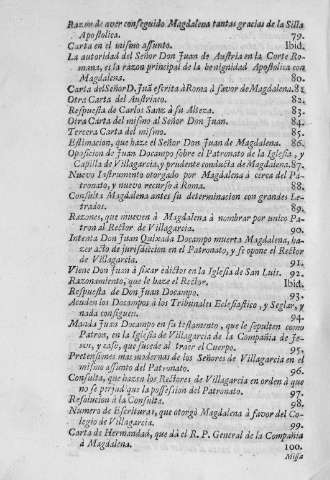 Razon de aver conseguido Magdalena tantas gracias de la Silla
Apostolica. 79.
Carta en el mismo assunto. Ibid.
La autoridad del Señor Don Juan de Austria en la Corte Ro-
mana, es la razon principal de la benignidad Apostolica con
Magdalena. 80.
Carta del Señor D. Juã escrita à Roma à favor de Magdalena. 81.
Otra Carta del Austriaco. 82.
Respuesta de Carlos Sanz à su Alteza. 83.
Otra Carta del mismo al Señor Don Juan. 84.
Tercera Carta del mismo. 85.
Estimacion, que haze el Señor Don Juan de Magdalena. 86.
Oposicion de Juan Docampo sobre el Patronato de la Iglesia, y
Capilla de Villagarcia, y prudente conducta de Magdalena. 87.
Nuevo Instrumento otorgado por Magdalena à cerca del Pa-
tronato, y nuevo recurso à Roma. 88.
Consulta Magdalena antes su determinacion con grandes Le-
trados. 89.
Razones, que mueven à Magdalena à nombrar por unico Pa-
tron al Rector de Villagarcia. 90.
Intenta Don Juan Quixada Docampo muerta Magdalena, ha-
zer acto de jurisdiccion en el Patronato, y se opone el Rector
de Villagarcia. 91.
Viene Don Juan à fixar edictos en la Iglesia de San Luis. 92.
Razonamiento, que le haze el Rector. Ibid.
Respuesta de Don Juan Docampo. 93.
Acuden los Docampos à los Tribunales Eclesiastico, y Seglar, y
nada consiguen. 94.
Manda Juan Docampo en su testamento, que le sepulten como
Patron, en la Iglesia de Villagarcia de la Compañia de Je-
sus, y caso, que sucede al traer el Cuerpo. 95.
Pretensiones mas modernas de los Señores de Villagarcia en el
mismo assunto del Patronato. 96.
Consulta, que hazen los Rectores de Villagarcia en orden à que
no se perjudique la possession del Patronato. 97.
Resolucion à la Consulta. 98.
Numero de Escrituras, que otorgò Magdalena à favor del Co-
legio de Villagarcia. 99.
Carta de Hermandad, que dà el R. P. General de la Compañia
à Magdalena. 100.
Missa